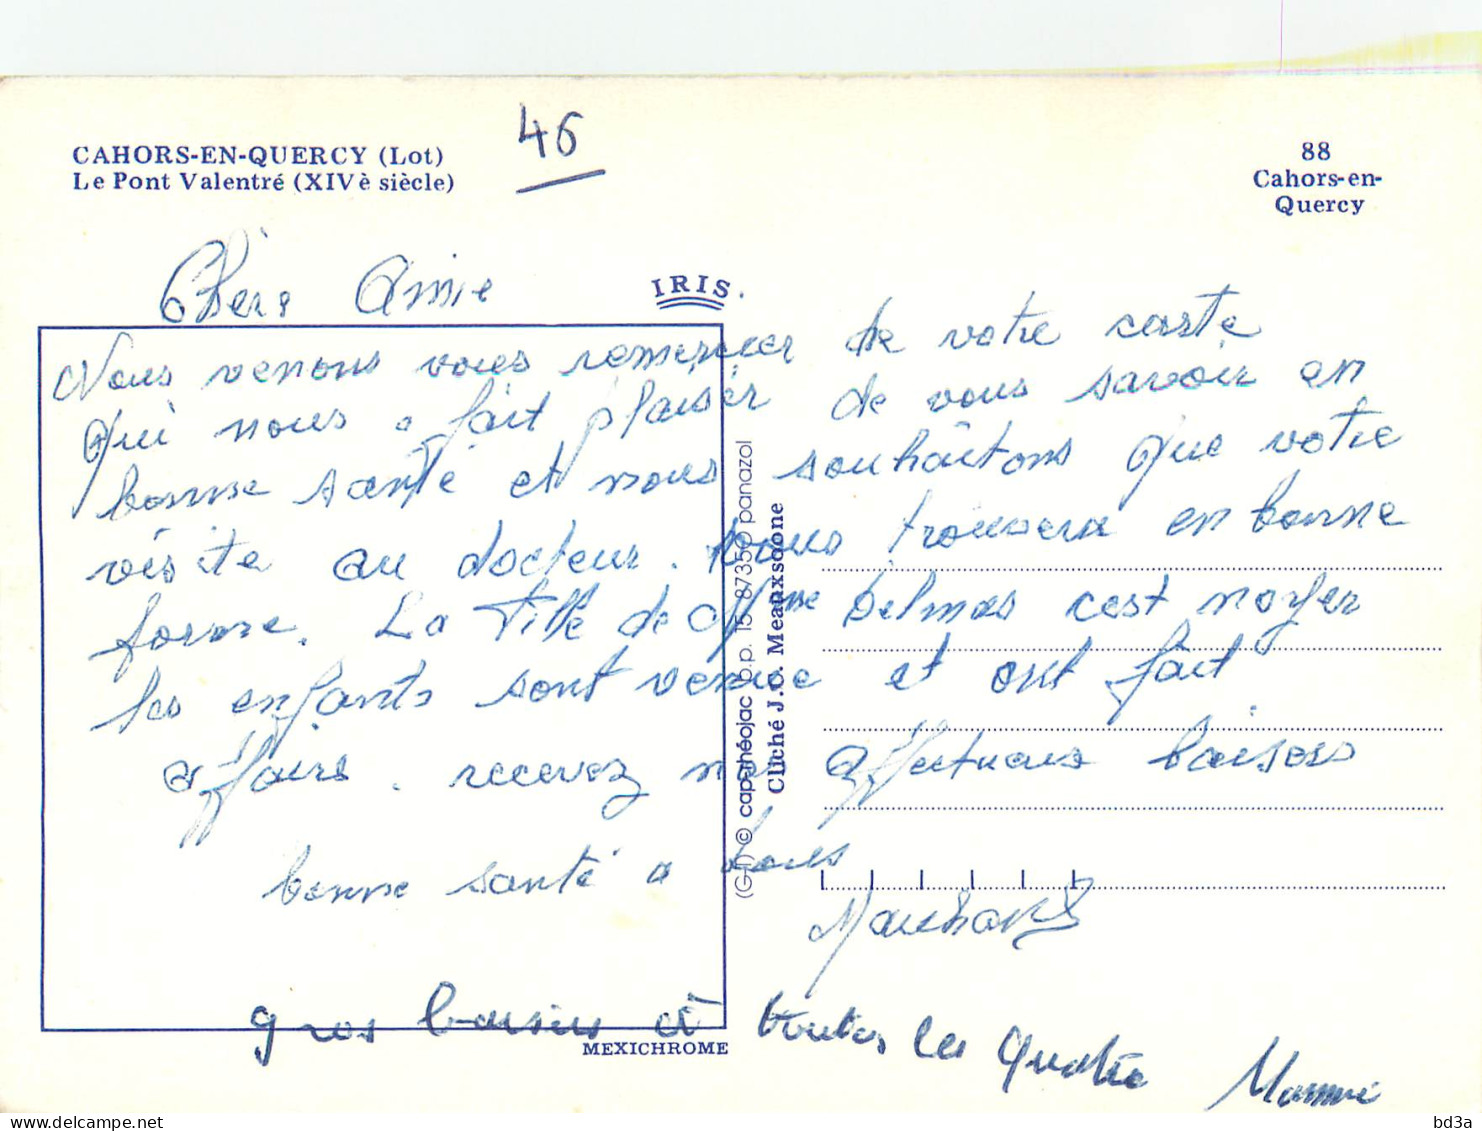 46
CAHORS-EN-QUERCY (Lot)
Le Pont Valentré (XIVè siècle)
88
Cahors-en-
Quercy
IRIS.
Chère Amie
Nous venons vous remercier de votre carte
qui nous a fait plaisir de vous savoir en
bonne santé et nous souhaitons que votre
visite au docteur. Vous trouvera en bonne
forme. La fille de Mme Delmas c'est noyer
les enfants sont venue et ont fait
affaire. recevez nos affectueux baisers
bonne santé a tous
gros baisers à toutes les quatre Mamie
MEXICHROME
(G-I) © cap-théojac b.p. 15 87350 panazol
Cliché J.C. Meauxsoone
bd3a